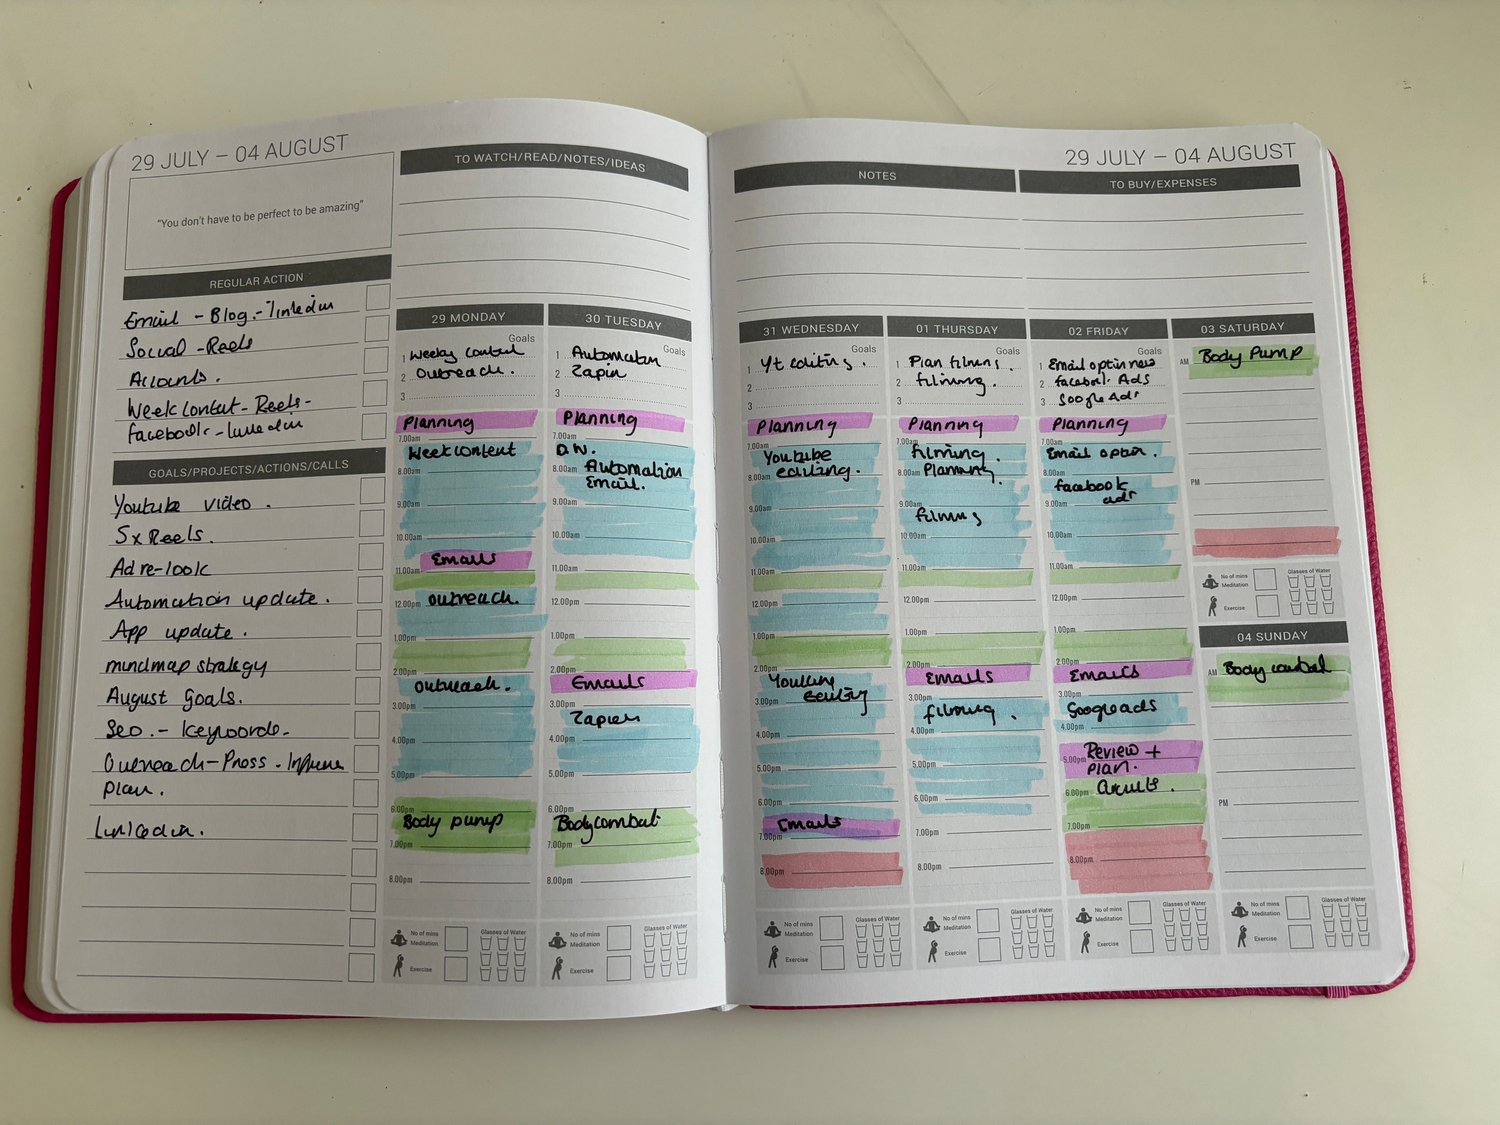 29 JULY – 04 AUGUST
"You don't have to be perfect to be amazing"
REGULAR ACTION
Email - Blog - linkedin
Social - Reels
Accounts.
Week Content - Reels -
facebook - linkedin
GOALS/PROJECTS/ACTIONS/CALLS
Youtube video.
5x Reels.
Ad re-look
Automation update.
App update.
mindmap strategy
August Goals.
Seo. - Keywords -
Outreach - Press -
plan.
linkedin.
TO WATCH/READ/NOTES/IDEAS
29 MONDAY
Goals
1 Weekly content
2 Outreach.
3
Planning
7.00am
Week content
8.00am
9.00am
10.00am
Emails
11.00am
12.00pm outreach.
1.00pm
2.00pm
outreach.
3.00pm
4.00pm
5.00pm
6.00pm
Body pump
7.00pm
8.00pm
No of mins
Meditation
Glasses of Water
Exercise
30 TUESDAY
Goals
1 Automation
2 Zapier
3
Planning
7.00am
D.W.
8.00am Automation
Email.
9.00am
10.00am
11.00am
12.00pm
1.00pm
2.00pm
Emails
3.00pm
Zapier
4.00pm
5.00pm
6.00pm
Bodycombat
7.00pm
8.00pm
No of mins
Meditation
Glasses of Water
Exercise
29 JULY – 04 AUGUST
NOTES
TO BUY/EXPENSES
31 WEDNESDAY
Goals
1 Yt editing.
2
3
Planning
7.00am
Youtube
editing.
8.00am
9.00am
10.00am
11.00am
12.00pm
1.00pm
2.00pm
Youtube
editing
3.00pm
4.00pm
5.00pm
6.00pm
Emails
7.00pm
8.00pm
No of mins
Meditation
Glasses of Water
Exercise
01 THURSDAY
Goals
1 Plan filming.
2 filming.
3
Planning
7.00am
filming.
8.00am Planning.
9.00am
filming
10.00am
11.00am
12.00pm
1.00pm
2.00pm
Emails
3.00pm
filming.
4.00pm
5.00pm
6.00pm
7.00pm
8.00pm
No of mins
Meditation
Glasses of Water
Exercise
02 FRIDAY
Goals
1 Email optin new
2 facebook Ads
3 Google Ads
Planning
7.00am
Email optin.
8.00am
facebook
ads
9.00am
10.00am
11.00am
12.00pm
1.00pm
2.00pm
Emails
3.00pm
Google ads
4.00pm
Review +
5.00pm
plan.
6.00pm
7.00pm
8.00pm
No of mins
Meditation
Glasses of Water
Exercise
03 SATURDAY
AM Body Pump
PM
No of mins
Meditation
Glasses of Water
Exercise
04 SUNDAY
AM Body combat
PM
No of mins
Meditation
Glasses of Water
Exercise